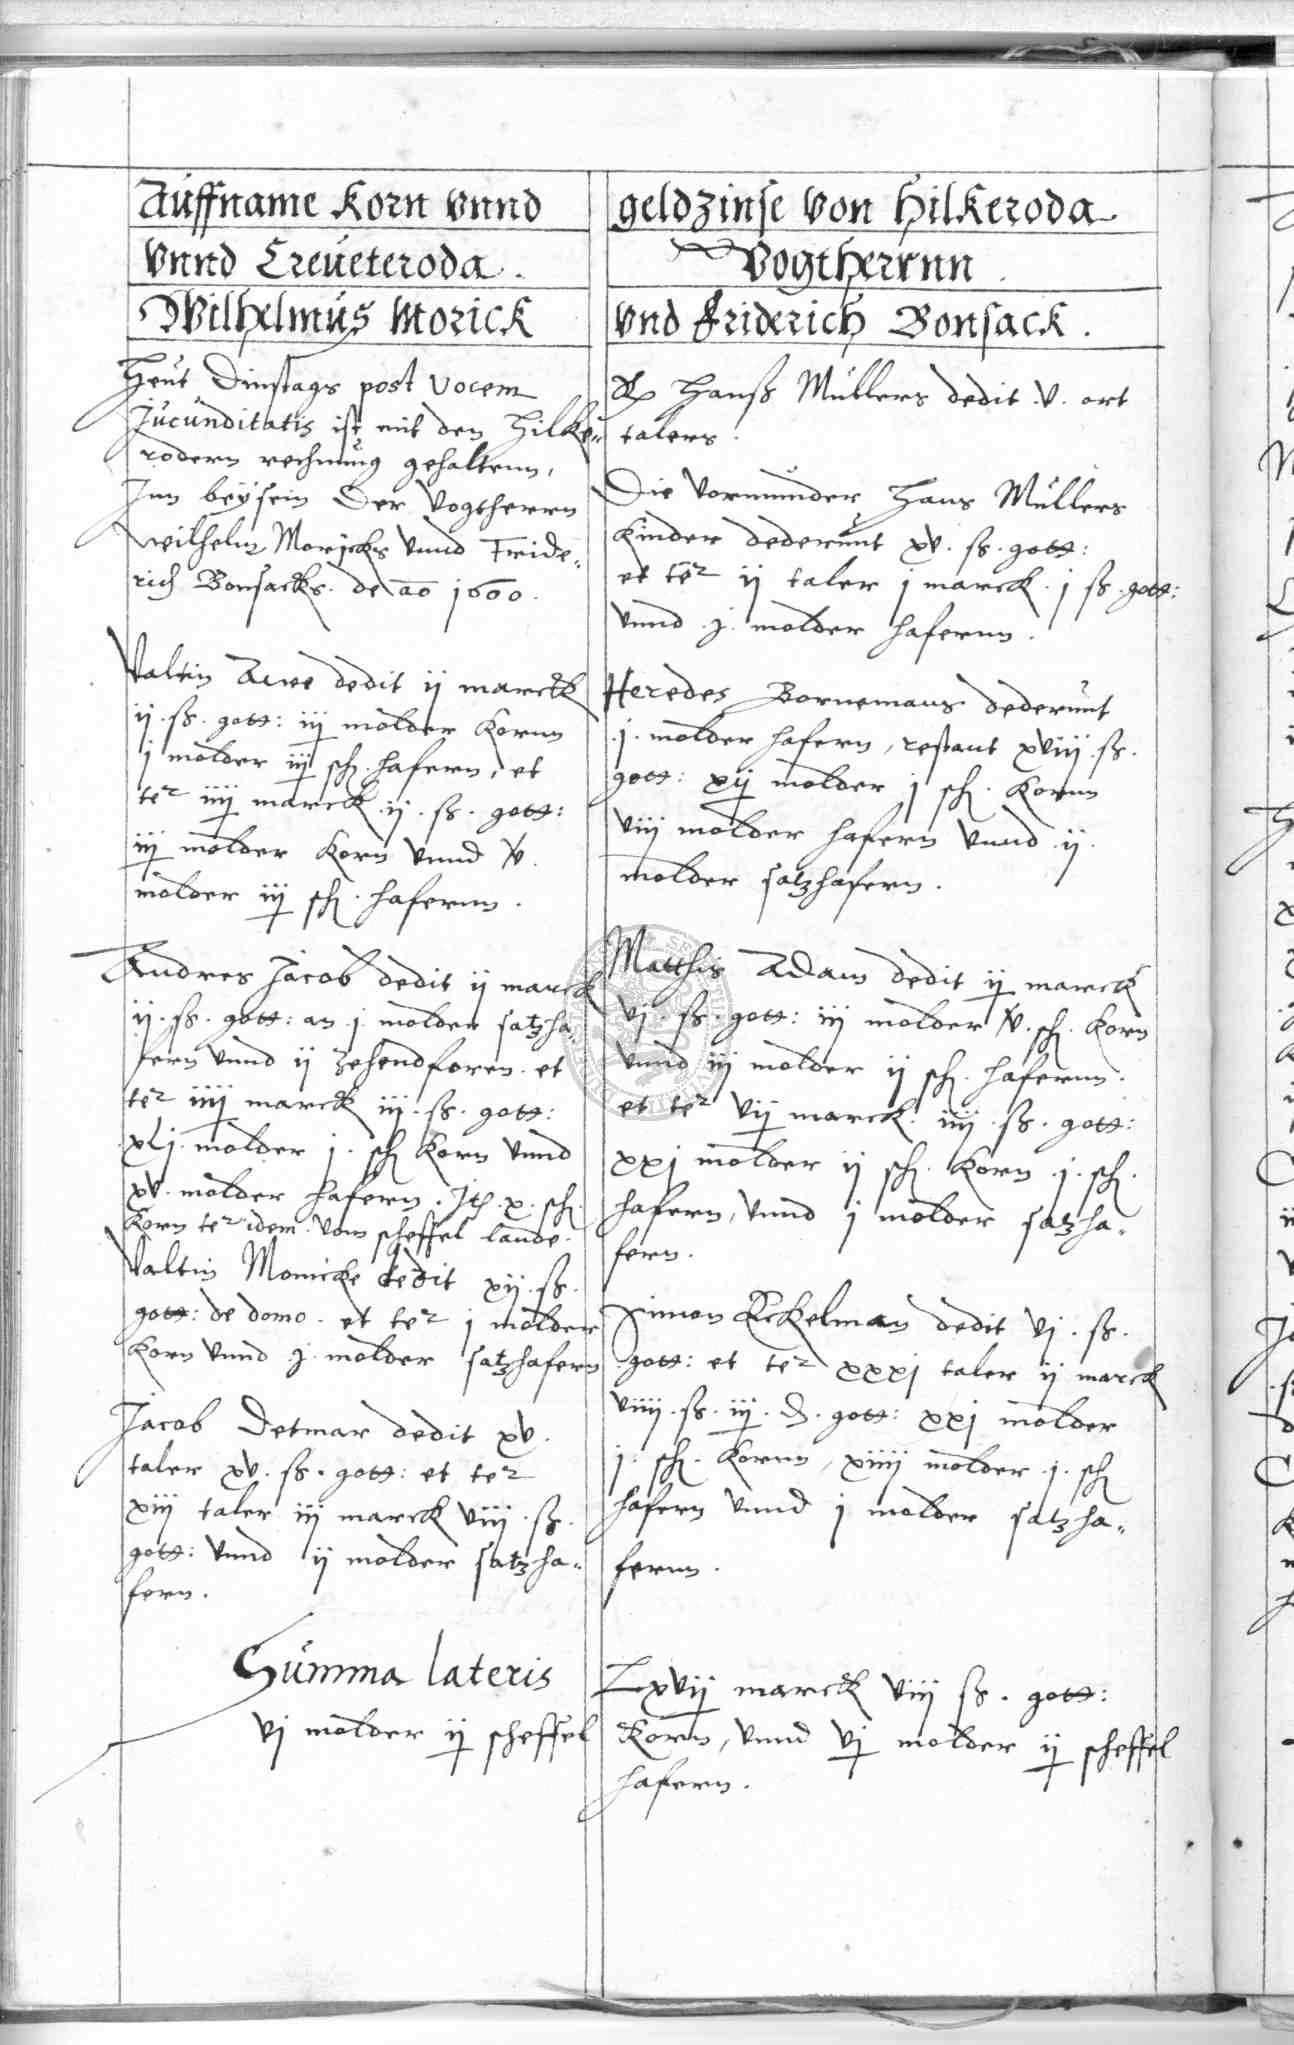 Auffname Korn vnnd
geldzinse von Hilkeroda
vnnd Creueteroda.
Vogtherrnn
Wilhelmus Morick
vnd Friderich Bonsack.
Heut Dinstags post Vocem
Jucunditatis ist mit den Hilke-
rodern rechnung gehaltenn,
Inn beysein Der Vogtherrn
Wilhelm Moricks vnnd Fride-
rich Bonsacks. de ao 1600.
Valtin dedit ij marck
ij. ß. gott: iij molder Kornn
j molder iij sch. hafern, et
ter iiij marck. ij. ß. gott:
iij molder Korn vnnd v.
molder iij sch. hafernn.
Andres Jacob dedit ij marck
ij. ß. gott: an j. molder satzha-
fern vnnd ij zehendforen. et
ter iiij marck iij. ß. gott:
xlj. molder j. sch Korn vnnd
xv. molder hafern. Ite. x. sch.
Korn ter idem. vom scheffel lande.
Valtin Monicke dedit xij. ß.
gott: de domo. et ter j molder
Korn vnnd j. molder satzhafern
Jacob Detmar dedit xv.
taler xv. ß. gott: et ter
xiij taler iij marck viij. ß.
gott: vnnd ij molder satzha-
fern.
Hanß Mullers dedit v. ort
talers.
Die vormunder Hans Mullers
Kinder dederunt xv. ß. gott:
et ter ij taler j marck. j ß. gott:
vnnd j. molder hafernn.
Heredes Bornemans dederunt
j. molder hafern, restant xviij. ß.
gott: xij molder j sch. Kornn
viij molder hafern vnnd ij.
molder satzhafern.
Matthis Adam dedit ij marck
vj. ß. gott: iij molder v. sch. Korn
vnnd iij molder ij sch. hafernn.
et ter vij marck. iiij. ß. gott:
xxj molder ij sch. Korn j. sch.
hafern, vnnd j molder satzha-
fern.
Simon Eckelman dedit vj. ß.
gott: et ter xxxj taler ij marck
viiij. ß. iij. d. gott: xxj molder
j. sch. Kornn, xiiij molder j. sch
hafern vnnd j molder satzha-
fernn.
Summa lateris
Lxvij marck viij ß. gott:
vj molder ij scheffel
Korn, vnnd vj molder ij scheffel
hafern.